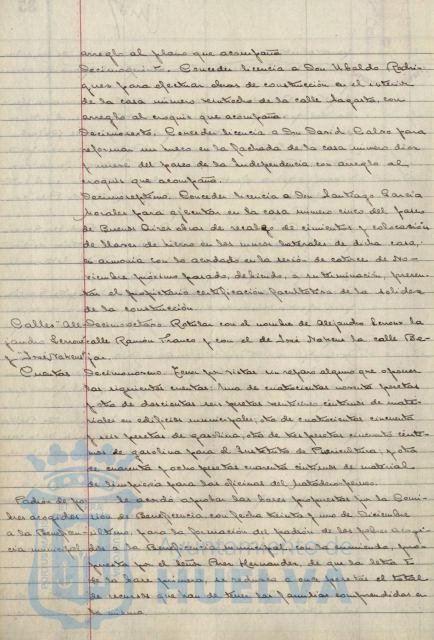 arreglo al plano que acompaña
Decimoquinto. Conceder licencia a Don Ubaldo Rodri-
guez para efectuar obras de construcción en el interior
de la casa número veintiocho de la calle Lagarto, con
arreglo al croquis que acompaña.
Decimosexto. Conceder licencia a Don David Calvo para
reformar un hueco en la fachada de la casa número diez
y nueve del paseo de la Independencia con arreglo al
croquis que acompaña.
Decimoseptimo. Conceder licencia a Don Santiago Garcia
Morales para ejecutar en la casa número cinco del paseo
de Buenos Aires obras de recalzo de cimientos y colocación
de llaves de hierro en los muros laterales de dicha casa,
en armonia con lo acordado en la sesión de catorce de No-
viembre próximo pasado, debiendo, a su terminación, presen-
tar el propietario certificación facultativa de la solidez
de la construcción.
Calles "Ale- Decimoctavo. Rotular con el nombre de Alejandro Lerroux la
jandro Lerroux calle Ramón Franco y con el de José Nakens la calle Be-
y "José Nakens" jar.
Cuentas Decimonoveno. Tener por vistas sin reparo alguno que oponer
las siguientes cuentas: Una de cuatrocientas noventa pesetas
y otra de doscientas seis pesetas veinticinco céntimos de mate-
riales en edificios municipales; otra de cuatrocientas cincuenta
y seis pesetas de gasolina, otra de tres pesetas cincuenta cénti-
mos de gasolina para el Instituto de Puericultura; y otra
de cuarenta y ocho pesetas cuarenta céntimos de material
de limpieza para las oficinas del
Padrón de po- Se acordó aprobar las bases propuestas por la Comi-
bres acogidos sión de Beneficencia con fecha treinta y uno de Diciembre
a la Beneficen- último, para la formación del padrón de los pobres acogi-
cia municipal dos a la Beneficencia municipal, con la enmienda, pro-
puesta por el señor Pros Hernandez, de que la letra b
de la base primera, se reduzca a once pesetas el total
de recursos que han de tener las familias comprendidas en
la misma